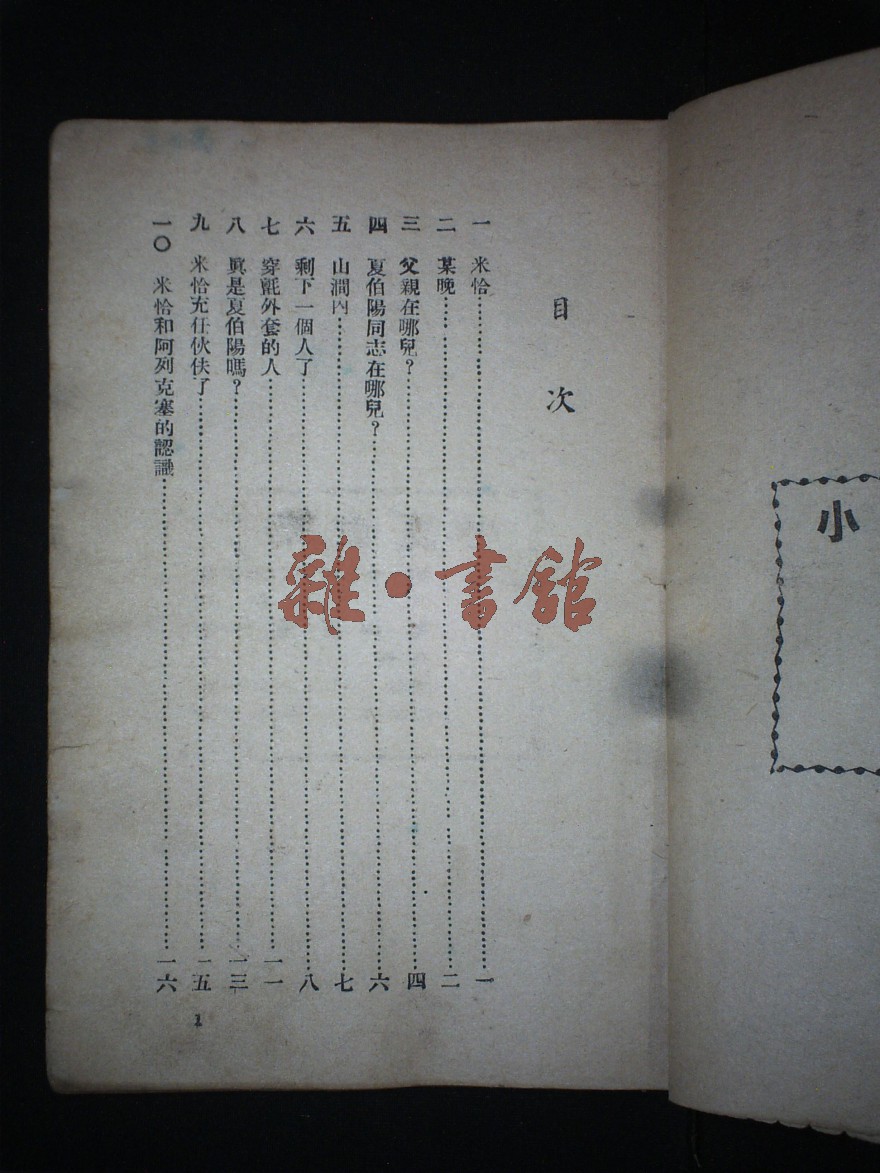 小
目次
一 米恰 一
二 某晚 二
三 父親在哪兒？ 四
四 夏伯陽同志在哪兒？ 六
五 山澗內 七
六 剩下一個人了 八
七 穿氈外套的人 一一
八 眞是夏伯陽嗎？ 一三
九 米恰充任伙伕了 一五
一〇 米恰和阿列克塞的認識 一六
1
雜·書館